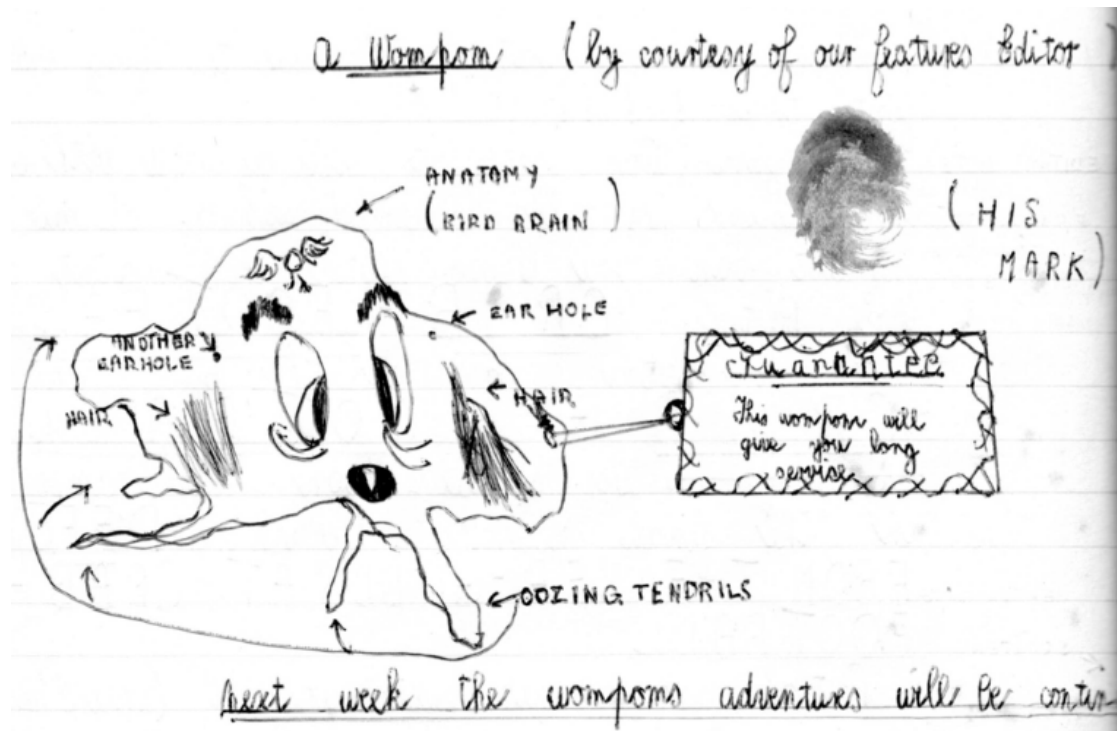 a Wompom (by courtesy of our features Editor)
ANATAMY
(BIRD BRAIN)
(HIS
MARK)
EAR HOLE
ANOTHER
EARHOLE
HAIR
HAIR
GuaranTEE
This wompom will
give you long
service
OOZING TENDRILS
next week the wompoms adventures will be contin-